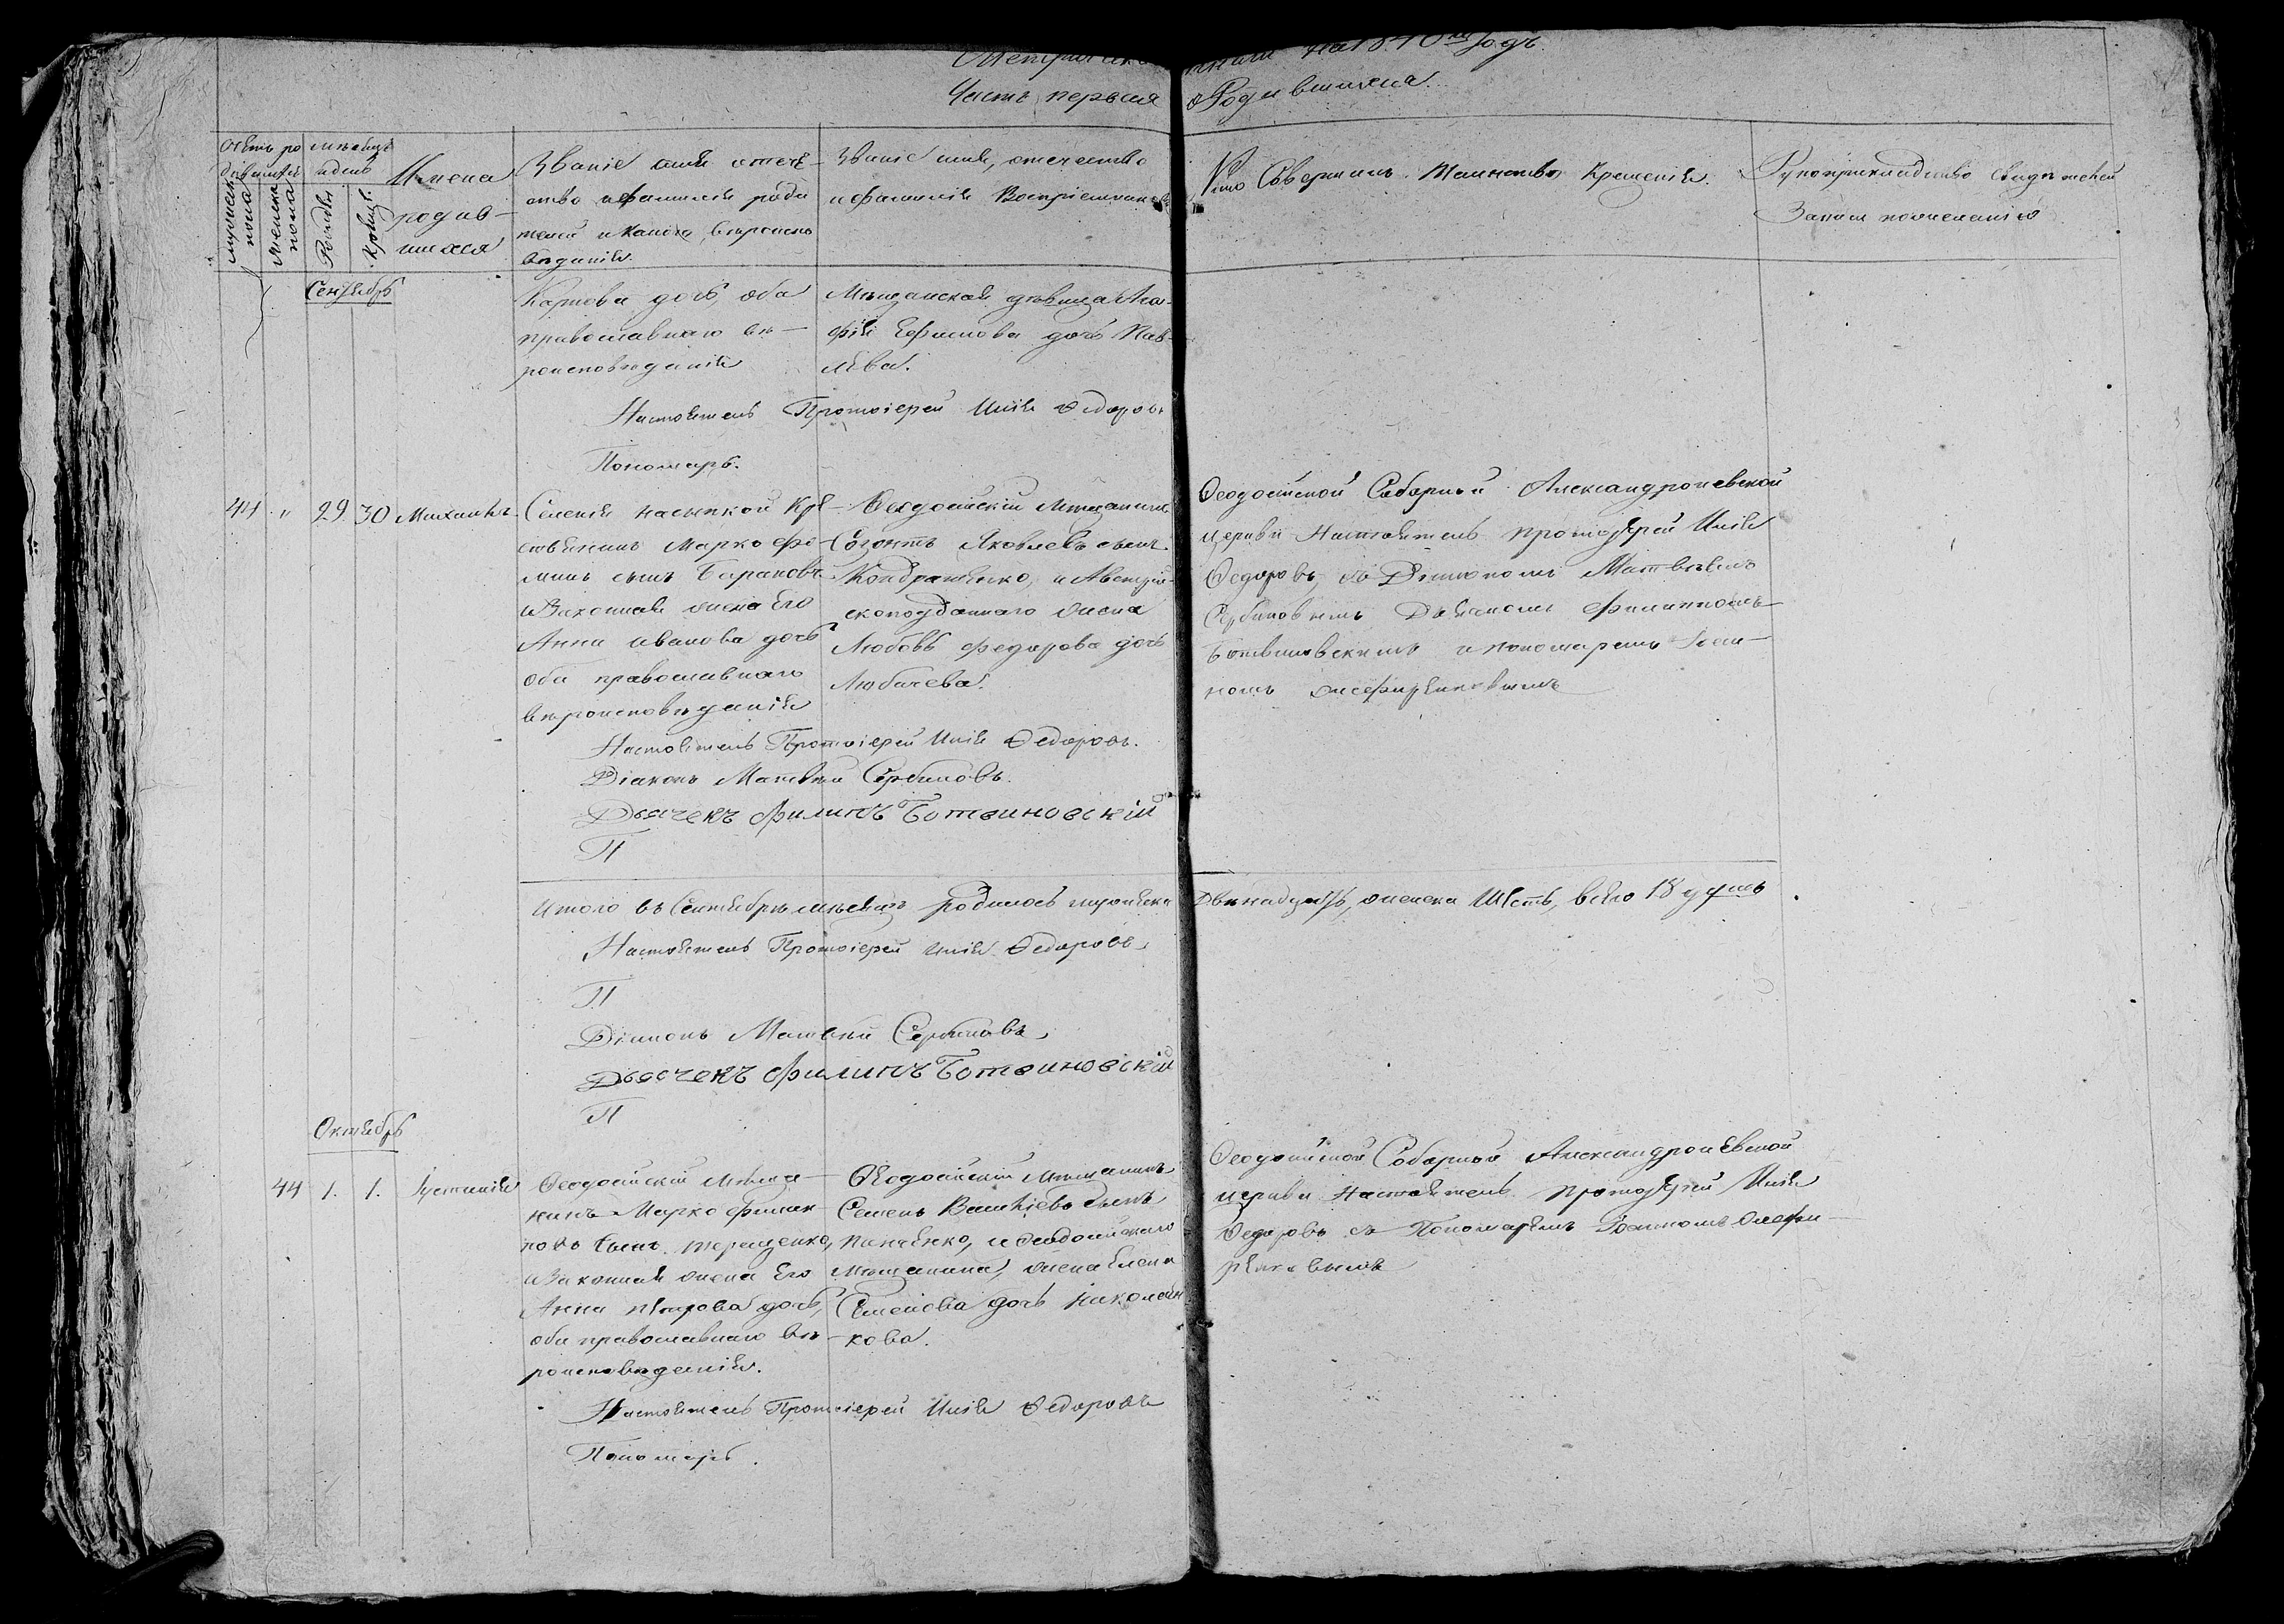 на 1840ый Годъ
Часть первая о Родившихся
Счетъ ро
дившихся
мужеска
пола
женска
пола
мѣсяцъ
и день
Рожде
крещ.
Имена
родив-
шихся
Званіе имя отече-
ство и фамилія роди
телей и какого вѣроиспо
вѣданія.
Званіе имя, отечество
и фамилія Воспріемниковъ
Кто Совершилъ Таинство Крещенія.
Рукоприкладство свидѣтелей
Записи по желанію
Сентябрь
Карпова дочь оба
православнаго вѣ-
роисповѣданія
Мѣщанская дѣвица Ага-
фія Ефимова дочь Пав-
лева.
Настоятель Протоіерей Илія Ѳедоровъ
Пономарь.
44 " 29. 30 Михаилъ.
Селенія Насыпкой Кре-
стьянинъ Марко Фо-
минъ сынъ Барановъ
и Законная жена его
Анна Иванова дочь
оба православнаго
вѣроисповѣданія
Ѳеодосійскій Мѣщанинъ
Созонтъ Яковлевъ сынъ
Кондратенко, и Австрій-
скоподданнаго жена
Любовь Федорова дочь
Любачева.
Ѳеодосійской Соборной Александроневской
церкви Настоятель протоіерей Илія
Ѳедоровъ, съ Діакономъ Матвѣемъ
Сербиновымъ Дьячкомъ Филиппомъ
Ботвиновскимъ и пономаремъ
Настоятель Протоіерей Илія Ѳедоровъ.
Діаконъ Матвѣй Сербиновъ.
Дьячекъ Филипъ Ботвиновскій
П
Итого въ Сентябрѣ мѣсяцѣ родилось мужеска Двѣнадцать, женска Шесть, всего 18 душъ
Настоятель Протоіерей Илія Ѳедоровъ
П
Діаконъ Матвѣй Сербиновъ
Дьячекъ Филипъ Ботвиновскій
П
Октябрь
44 1. 1. Іустинія
Ѳеодосійскій мѣща-
нинъ Марко Филип
повъ сынъ Терещенко,
и Законная жена Его
Анна Петрова дочь,
оба православнаго вѣ-
роисповѣданія.
Ѳеодосійскій Мѣщанинъ
Семенъ Васильевъ сынъ
Панченко, и Ѳеодосійскаго
Мѣщанина, жена Елена
Семенова дочь Николай
кова.
Ѳеодосійской Соборной Александроневской
церкви Настоятель протоіерей Илія
Ѳедоровъ съ Пономаремъ
Настоятель Протоіерей Илія Ѳедоровъ
Пономарь.